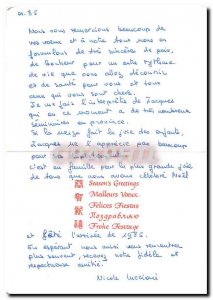 01.85
Nous vous remercions beaucoup de
vos vœux et à notre tour nous en
formulons de très sincères de paix,
de bonheur pour un autre rythme
de vie que vous allez découvrir
et de santé pour vous et tous
ceux qui vous sont chers.
Je me fais l'interprète de Jacques
qui en ce moment a de très nombreux
séminaires en province.
Si la neige fait la joie des enfants,
Jacques ne l'apprécie pas beaucoup
pour
c'est en famille pour la plus grande joie
de tous que nous avons célébré Noël
商 Season's Greetings
賀 Meilleurs Vœux
Felices Fiestas
Поздравляю
禧 Frohe Festtage
et fêté l'arrivée de 1985.
En espérant nous aussi vous rencontrer
plus souvent, recevez notre fidèle et
respectueuse amitié.
Nicole